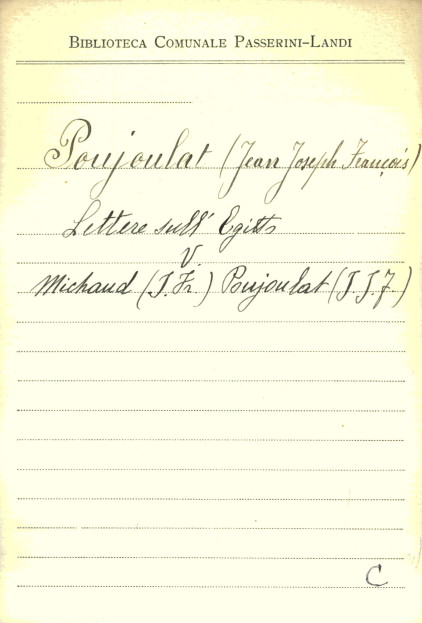 BIBLIOTECA COMUNALE PASSERINI-LANDI
Poujoulat (Jean Joseph François)
Lettere sull' Egitto
V.
Michaud (J. Fr.) Poujoulat (J. J. F.)
C